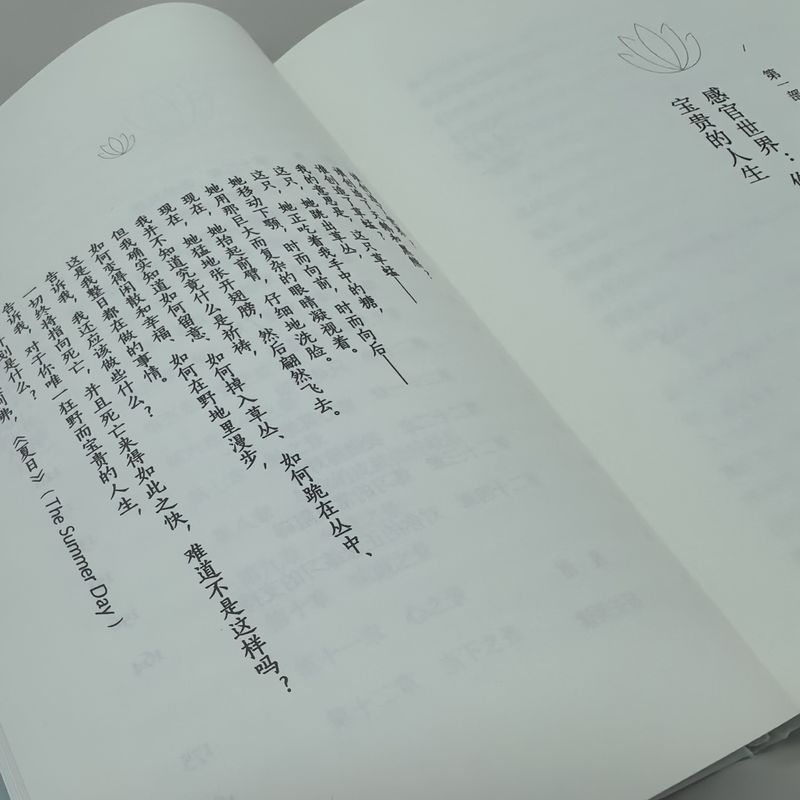 第一部
感官世界：
宝贵的人生
这只草蜢——
我的意思是，她跳出草丛，
这只，她正吃着我手中的糖，
她移动下颚，时而向前，时而向后——
她用那巨大而复杂的眼睛凝视着。
现在，她抬起前臂，仔细地洗脸。
现在，她猛地张开翅膀，然后翩然飞去。
我并不知道究竟什么是祈祷，
但我确实知道如何留意、如何掉入草丛、如何跪在丛中、
如何变得闲散和幸福、如何在野地里漫步，
这是我整日都在做的事情。
告诉我，我还应该做些什么？
一切终将指向死亡，并且死亡来得如此之快，难道不是这样吗？
告诉我，对于你唯一狂野而宝贵的人生，
计划是什么？
《夏日》（The Summer Day）